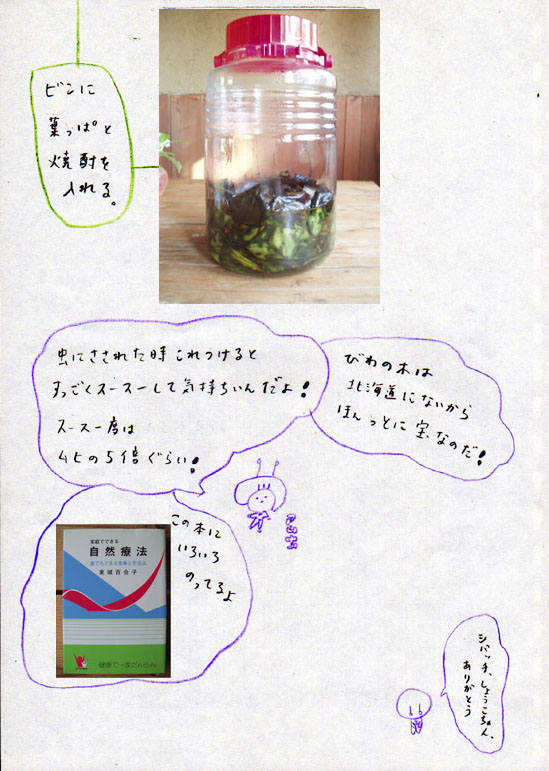 ビンに
葉っぱと
焼酎を
入れる。
虫にさされた時これつけると
すっごくスースーして気持ちいんだよ!
スースー度は
ムヒの5倍ぐらい!
びわの木は
北海道にないから
ほんっとに宝なのだ!
この本に
いろいろ
のってるよ
家庭でできる
自然療法
誰でもできる食事と手当法
東城百合子
シバッチ、しょうこちゃん、
ありがとう